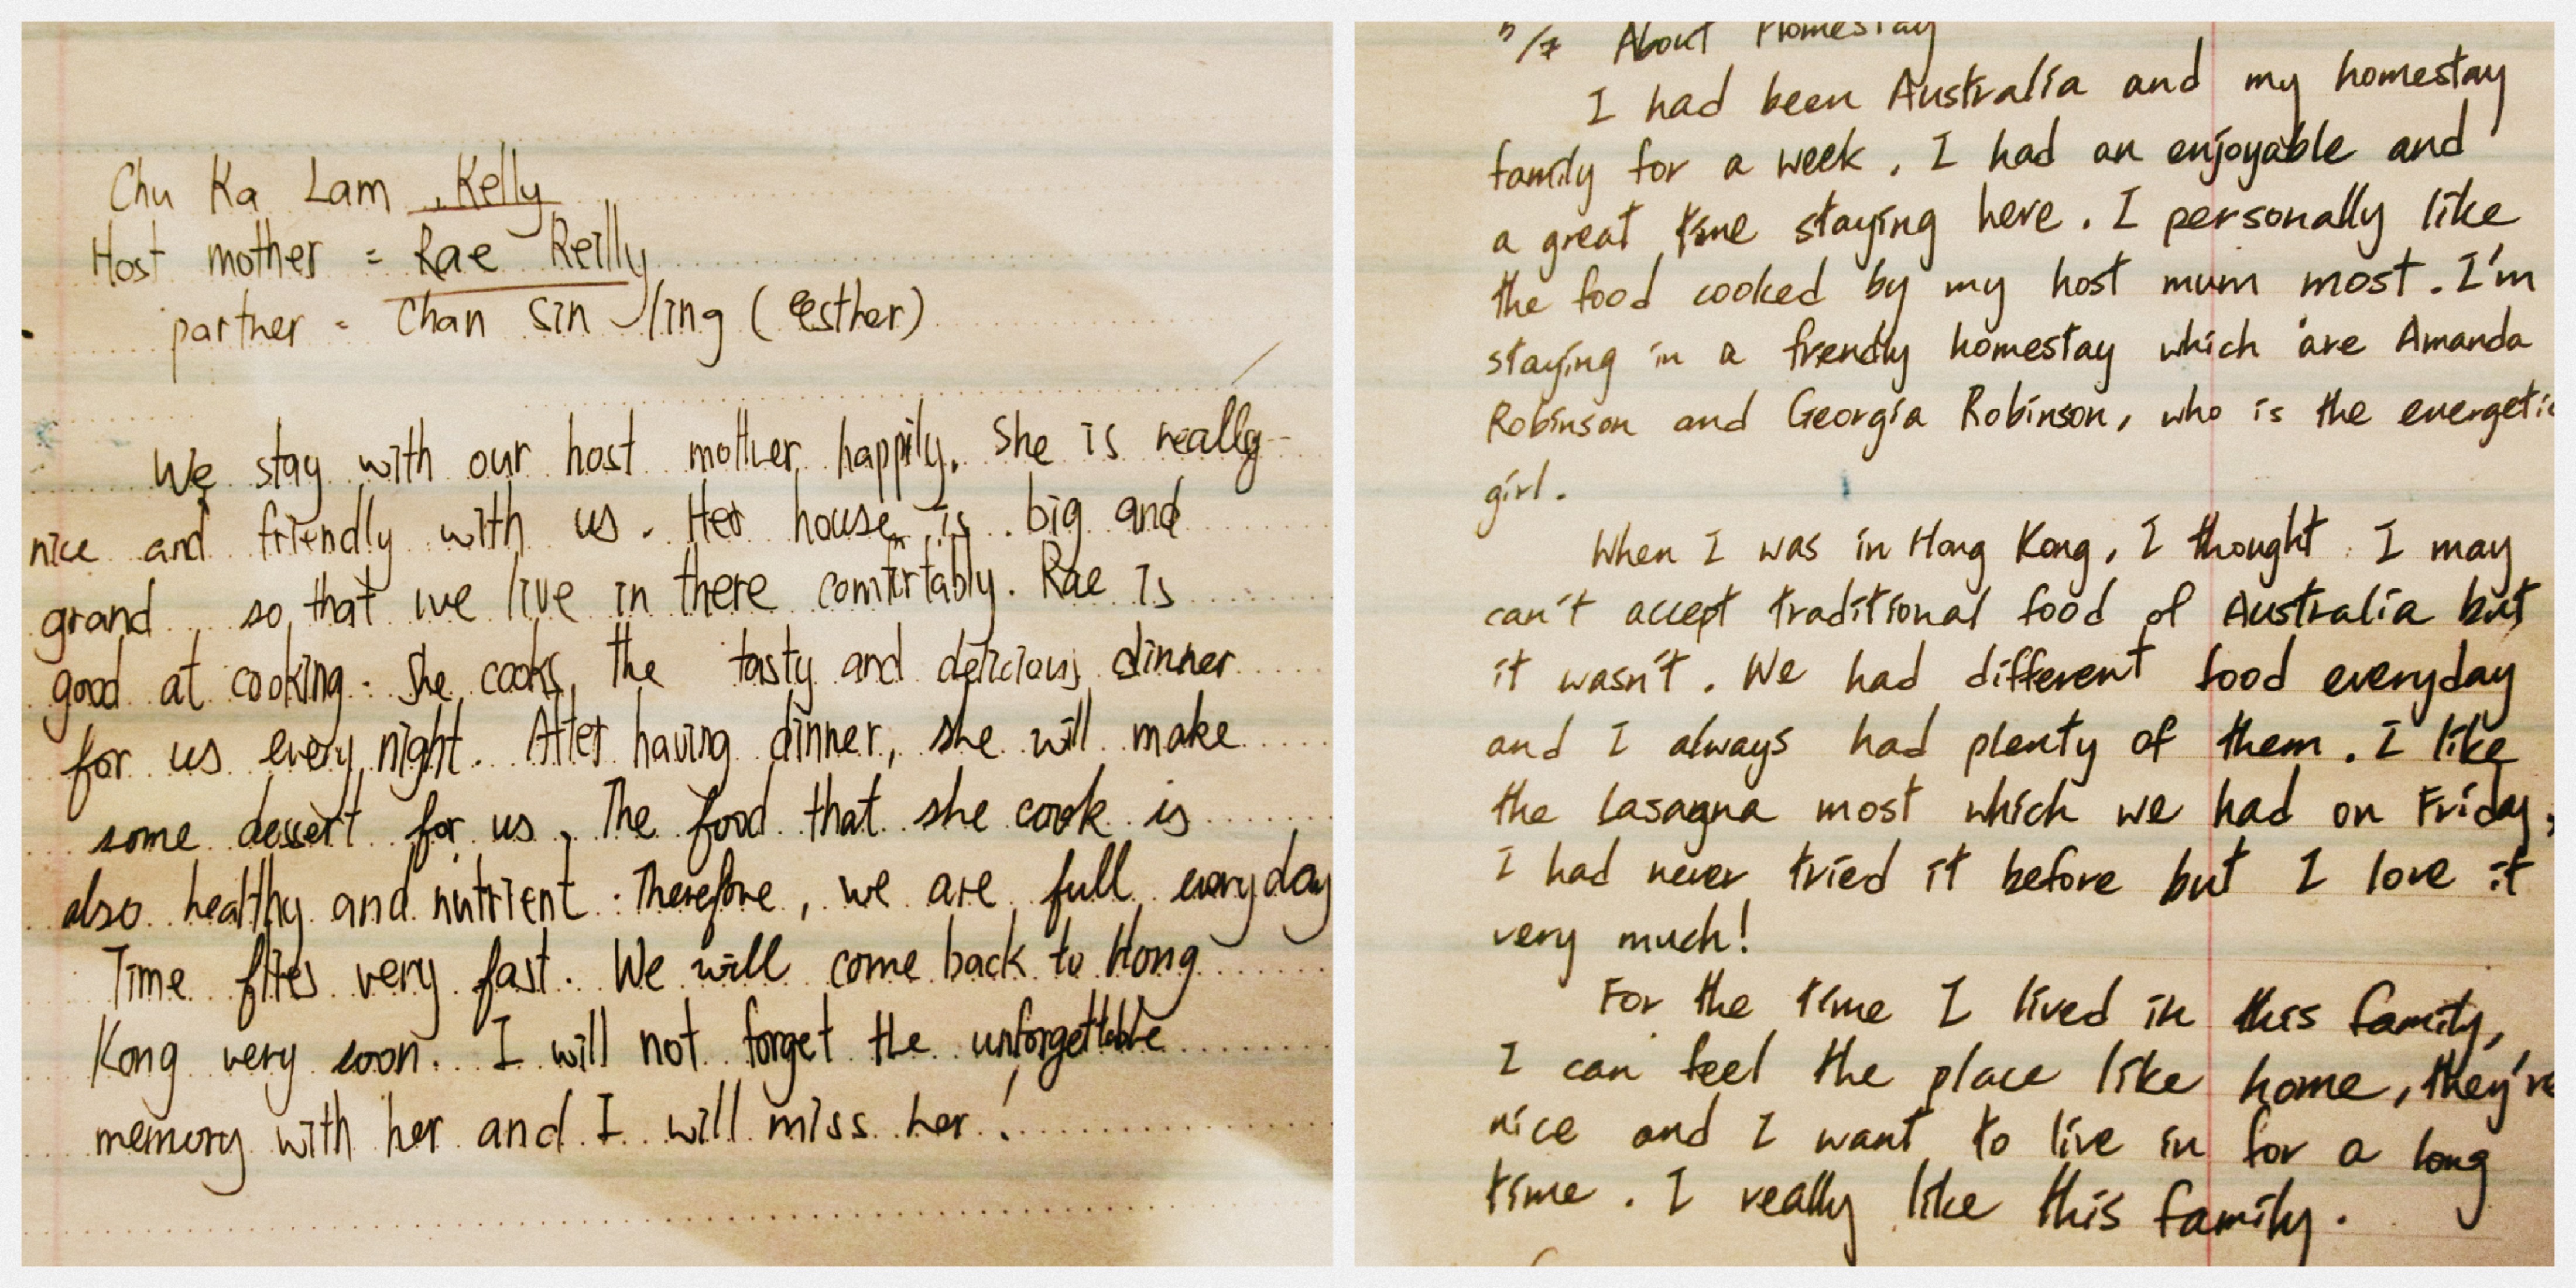 Chu Ka Lam , Kelly
Host mother = Rae Reilly
partner = Chan Sin ling (Esther)
We stay with our host mother happily. She is really
nice and friendly with us. Her house is big and
grand so that we live in there comfirtably. Rae is
good at cooking. She cooks the tasty and delicious dinner
for us every night. After having dinner, she will make
some dessert for us. The food that she cook is
also healthy and nutrient. Therefore, we are full everyday
Time flies very fast. We will come back to Hong
Kong very soon. I will not forget the unforgettable
memory with her and I will miss her!
5/7 About Homestay
I had been Australia and my homestay
family for a week. I had an enjoyable and
a great time staying here. I personally like
the food cooked by my host mum most. I'm
staying in a frendly homestay which are Amanda
Robinson and Georgia Robinson, who is the energetic
girl.
When I was in Hong Kong, I thought I may
can't accept traditional food of Australia but
it wasn't. We had different food everyday
and I always had plenty of them. I like
the Lasagna most which we had on Friday,
I had never tried it before but I love it
very much!
For the time I lived in this family,
I can feel the place like home, they're
nice and I want to live in for a long
time. I really like this family.